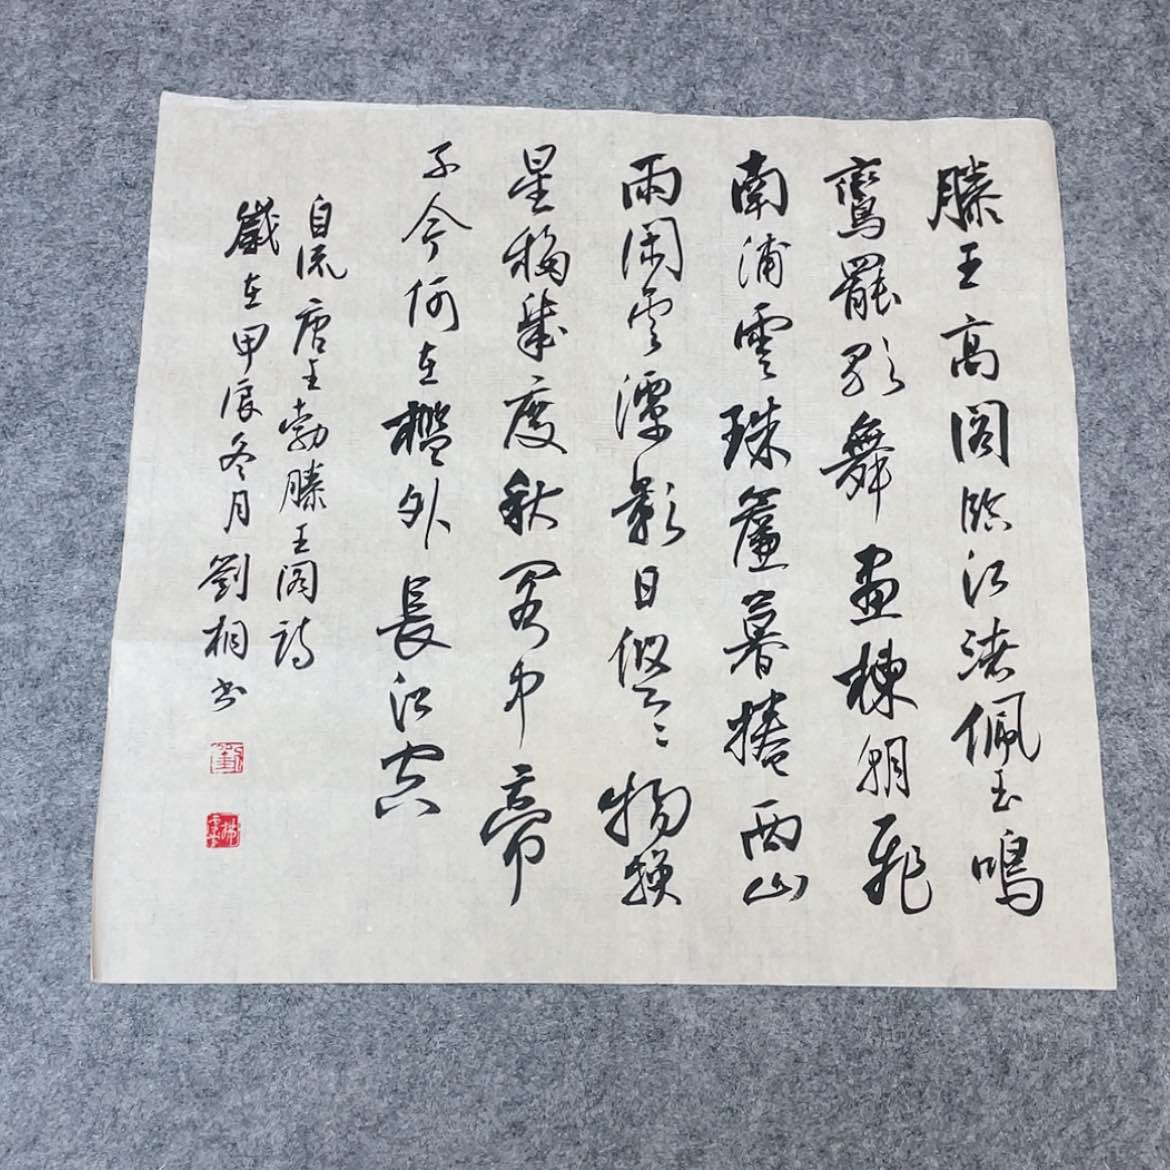 滕王高阁临江渚佩玉鳴
鸞罷歌舞畫棟朝飛
南浦雲珠簾暮捲西山
雨闲云潭影日悠々物换
星移幾度秋阁中帝
子今何在檻外長江空
自流唐王勃滕王阁诗
歲在甲辰冬月劉桐书